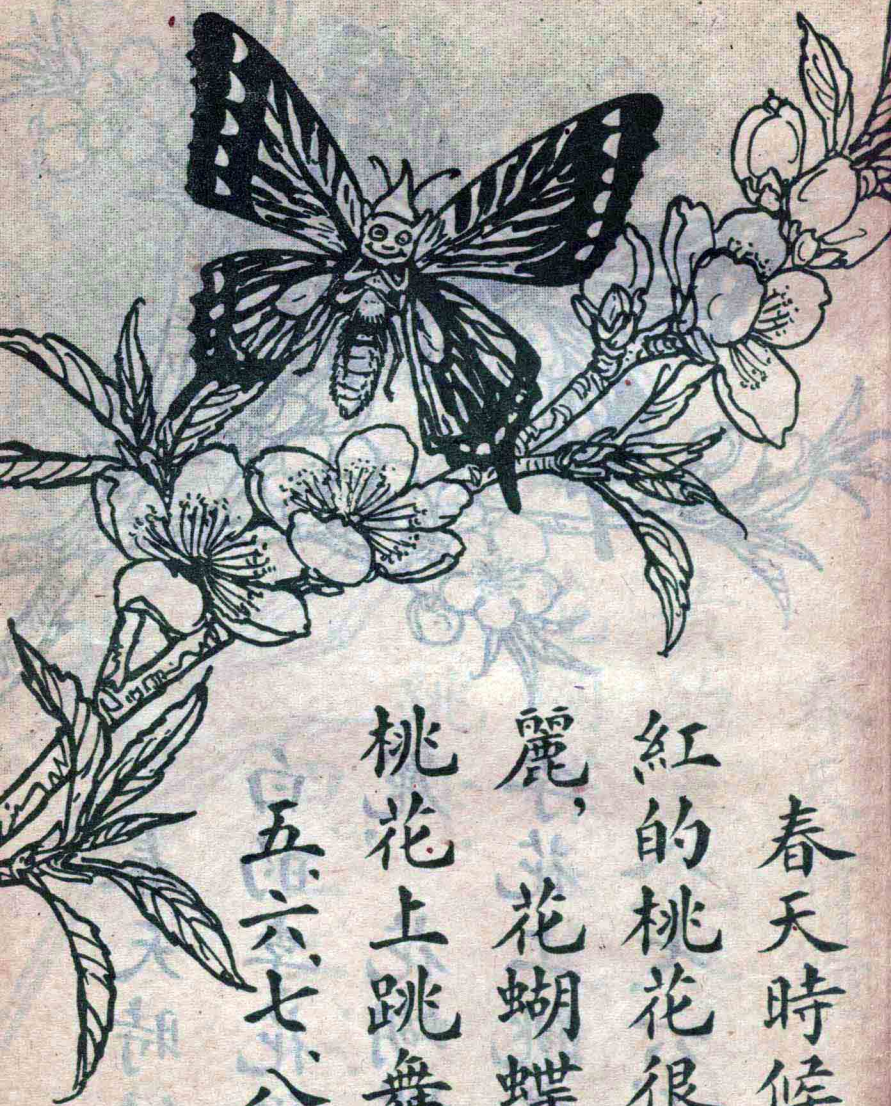 春天時候
紅的桃花很
麗，花蝴蝶
桃花上跳舞
五、六、七、八